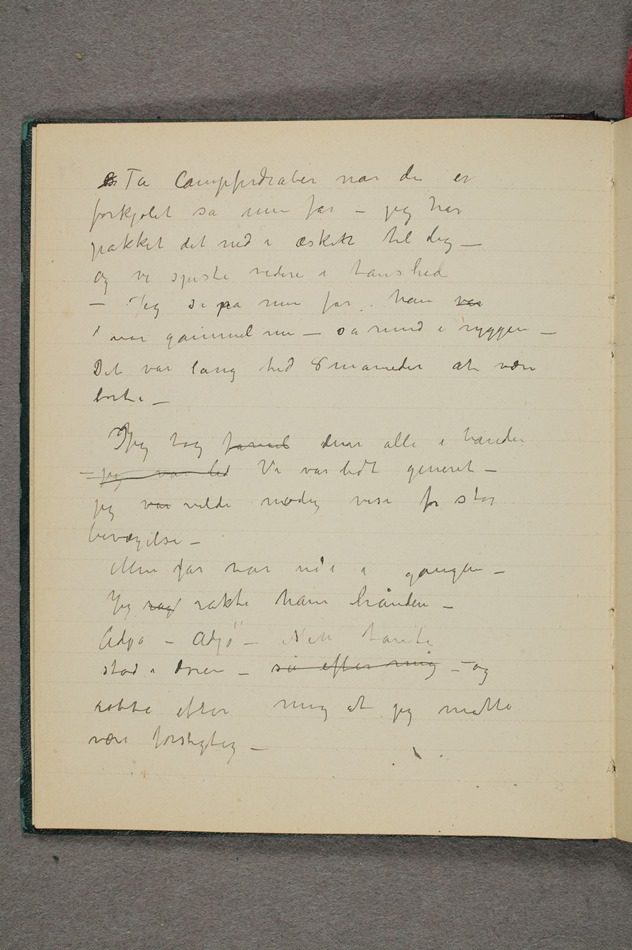 Ta Campferdraaber nar du er
forkjølet sa min far – jeg har
pakket det ned i æsken til dig –
og vi spiste videre i taushed
– Jeg så på min far. han var
var gammel nu – så rund i ryggen –
Det var lang tid 8 maneder at være
borte –
Jeg tog farvel dem alle i hænder
– jeg var led Vi var lidt generet –
jeg var vilde nødig vise for stor
bevægelse –
Min far var ude i gangen –
Jeg rakte ham hånden –
Adjø – Adjø –
stod i døren – så efter mig – og
robte efter mig at jeg måtte
være forsigtig –